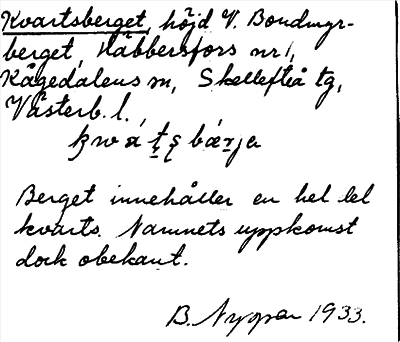 Kvartsberget, höjd V. Boudmyr-
berget, Häbbersfors nr 1,
Kågedalens sn, Skellefteå tg,
Västerb. l.
Berget innehåller en hel del
kvarts. Namnets uppkomst
dock obekant.
B. Nyman 1933.